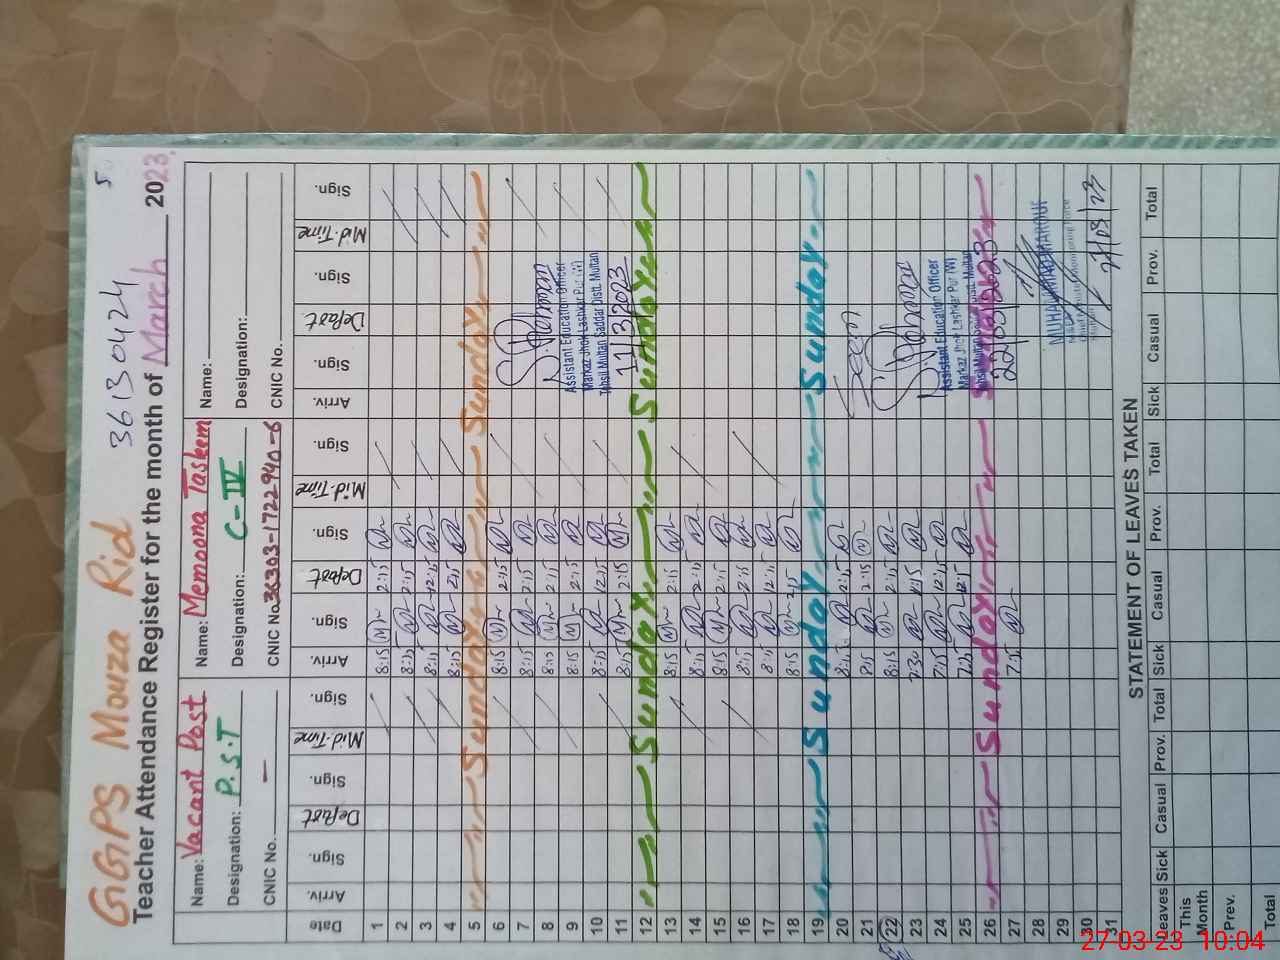 GGPS Mouza Rid 36130424 5
Teacher Attendance Register for the month of March 2023.
Name: Vacant Post Name: Memoona Tasleem Name:
Designation: P.S.T Designation: C-IV Designation:
CNIC No. — CNIC No. 36303-1722940-6 CNIC No.
Date Arriv. Sign. Depart Sign. Mid-Time Sign. Arriv. Sign. Depart Sign. Mid-Time Sign. Arriv. Sign. Depart Sign. Mid-Time Sign.
1 8:15 2:15
2 8:15 2:15
3 8:15 12:15
4 8:15 2:15
5 Sunday Sunday Sunday
6 8:15 2:15
7 8:15 2:15
8 8:15 2:15
9 8:15 2:15 Assistant Education Officer
10 8:15 12:15 Markaz Jhok Lashkar Pur (W)
Tehsil Multan Saddar Dist. Multan
11 8:15 2:15 11/3/2023
12 Sunday Sunday
13 8:15 2:15
14 8:15 2:15
15 8:15 2:15
16 8:15 2:15
17 8:15 12:15
18 8:15 2:15
19 Sunday Sunday
20 8:15 2:15 Seen
21 8:15 2:15
22 8:15 2:15
23 7:30 1:15
24 7:15 12:15 Assistant Education Officer
25 7:15 12:15 Markaz Jhok Lashkar Pur (W)
Tehsil Multan Saddar Dist. Multan
26 Sunday Sunday 22/03/2023
27 7:15
28
29
30 27/03/23
31
STATEMENT OF LEAVES TAKEN
Leaves Sick Casual Prov. Total Sick Casual Prov. Total Sick Casual Prov. Total
This Month
Prev.
Total
27-03-23 10:04